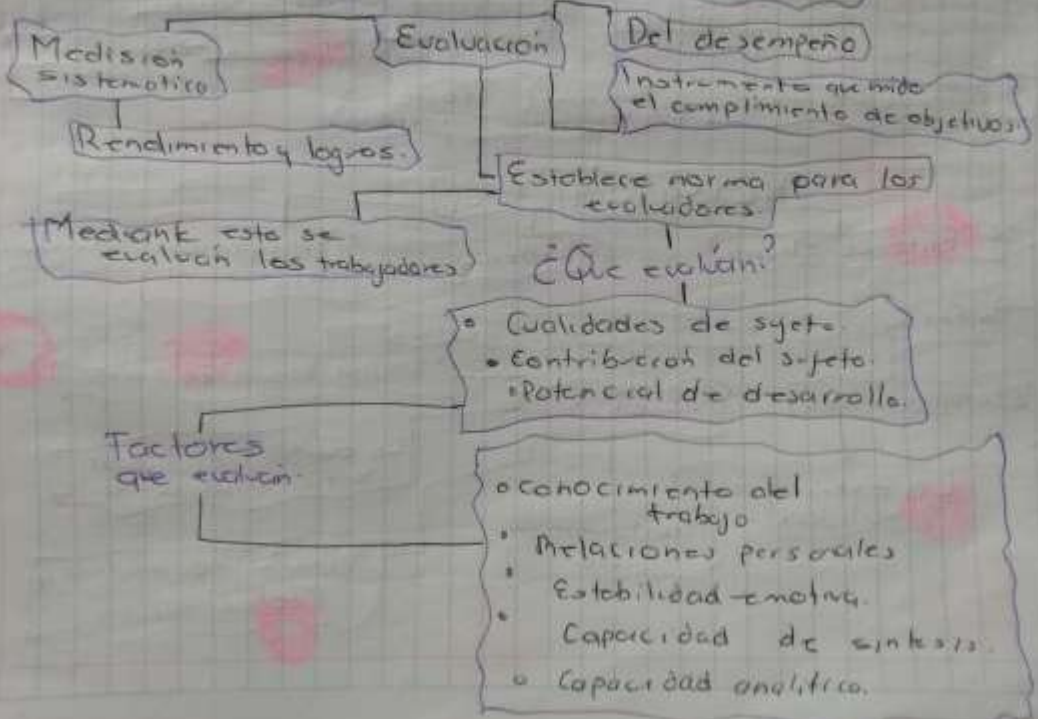 Medisión
sistematica
Evaluación
Del desempeño
Instrumento que mide
el cumplimiento de objetivos.
Rendimiento y logros.
Establece norma para los
evaluadores.
Mediante esto se
evaluan los trabajadores
¿Que evaluan?
• Cualidades de sujeto
• Contribución del sujeto.
• Potencial de desarrollo.
Factores
que evaluan.
• Conocimiento del
trabajo
• Relaciones personales
• Estabilidad emotiva.
• Capacidad de sintesis.
• Capacidad analitica.